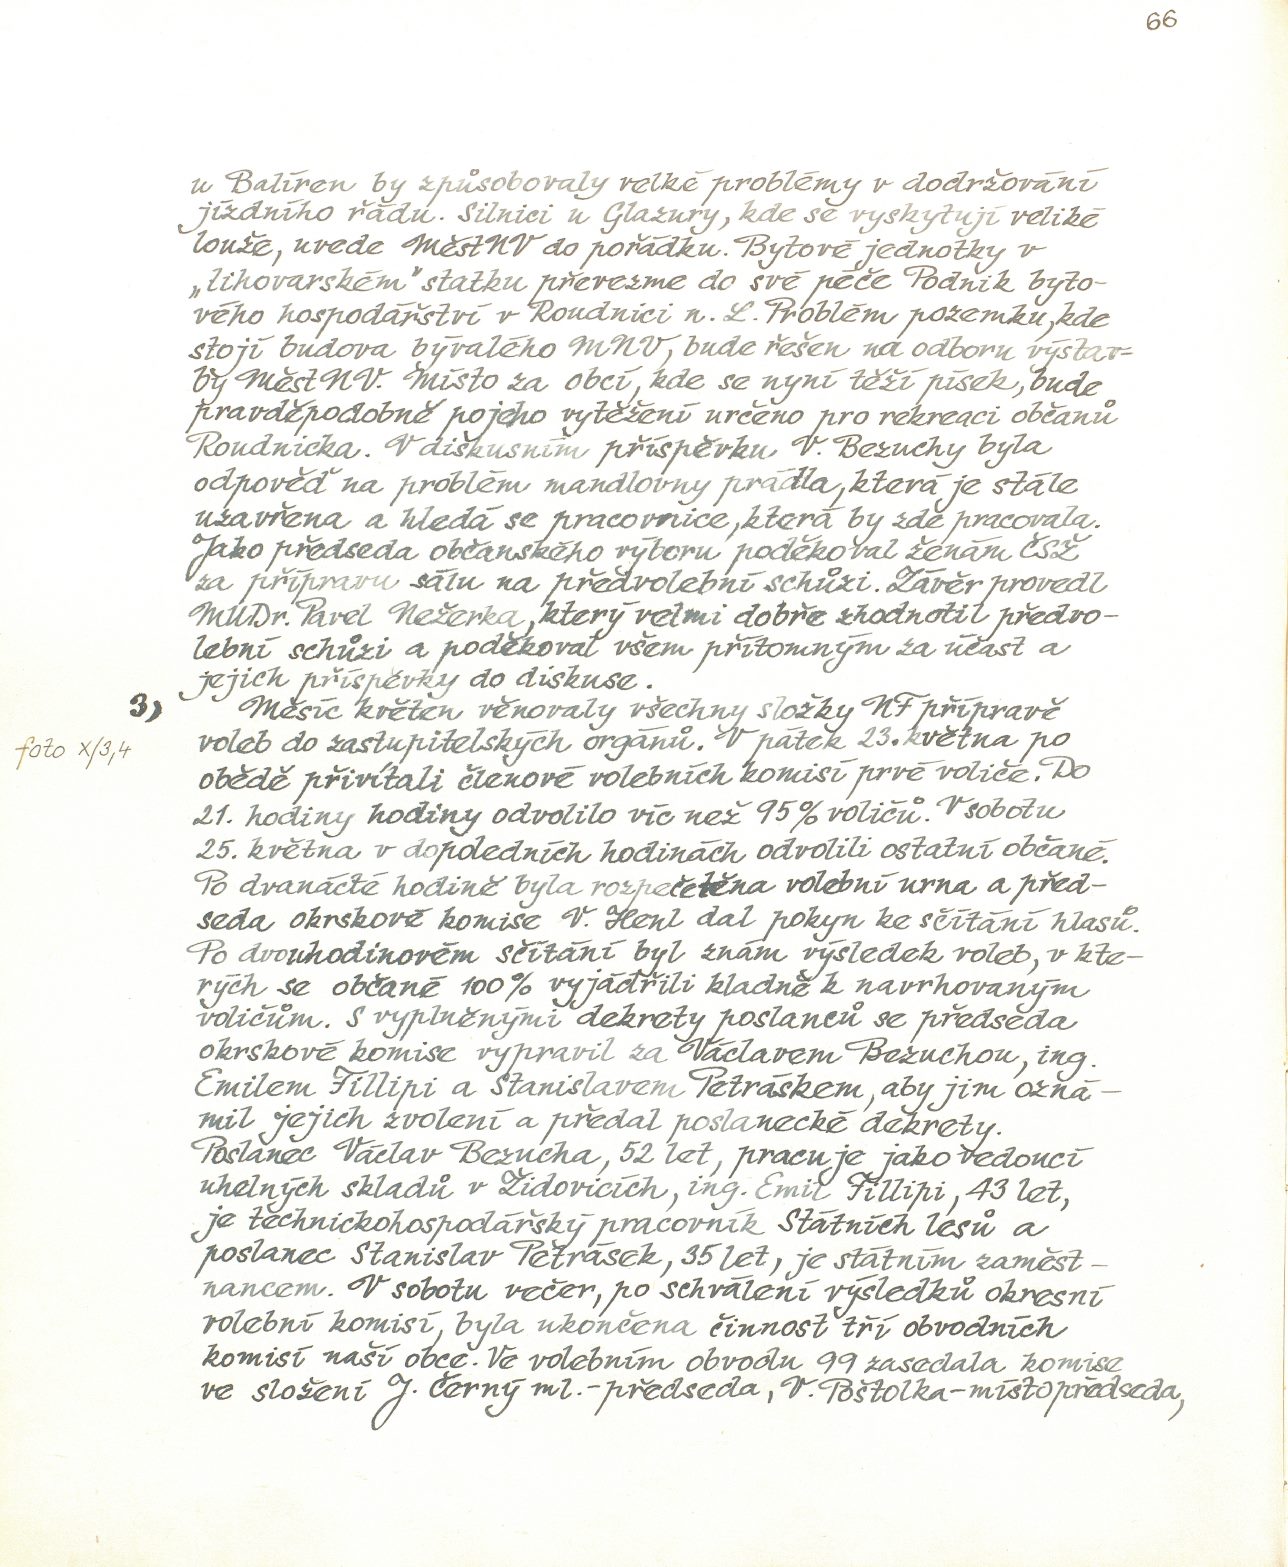 66
u Balíren by způsobovaly velké problémy v dodržování
jízdního řádu. Silnici u Glazury, kde se vyskytují veliké
louže, uvede MěstNV do pořádku. Bytové jednotky v
„lihovarském" statku převezme do své péče Podnik byto-
vého hospodářství v Roudnici n. L. Problém pozemku, kde
stojí budova bývalého MNV, bude řešen na odboru výstav=
by MěstNV. Místo za obcí, kde se nyní těží písek, bude
pravděpodobně po jeho vytěžení určeno pro rekreaci občanů
Roudnicka. V diskusním příspěvku V. Bezuchy byla
odpověď na problém mandlovny prádla, která je stále
uzavřena a hledá se pracovnice, která by zde pracovala.
Jako předseda občanského výboru poděkoval ženám ČSŽ
za přípravu sálu na předvolební schůzi. Závěr provedl
MUDr. Pavel Nežerka, který velmi dobře zhodnotil předvo-
lební schůzi a poděkoval všem přítomným za účast a
jejich příspěvky do diskuse.
3) Měsíc květen věnovaly všechny složky NF přípravě
foto X/3,4 voleb do zastupitelských orgánů. V pátek 23. května po
obědě přivítali členové volebních komisí prvé voliče. Do
21. hodiny hodiny odvolilo víc než 95% voličů. V sobotu
25. května v dopoledních hodinách odvolili ostatní občané.
Po dvanácté hodině byla rozpečetěna volební urna a před-
seda okrskové komise V. Henl dal pokyn ke sčítání hlasů.
Po dvouhodinovém sčítání byl znám výsledek voleb, v kte-
rých se občané 100% vyjádřili kladně k navrhovaným
voličům. S vyplněnými dekrety poslanců se předseda
okrskové komise vypravil za Václavem Bezuchou, ing.
Emilem Fillipi a Stanislavem Petráskem, aby jim ozná-
mil jejich zvolení a předal poslanecké dekrety.
Poslanec Václav Bezucha, 52 let, pracuje jako vedoucí
uhelných skladů v Židovicích, ing. Emil Fillipi, 43 let,
je technickohospodářský pracovník Státních lesů a
poslanec Stanislav Petrásek, 35 let, je státním zaměst-
nancem. V sobotu večer, po schválení výsledků okresní
volební komisí, byla ukončena činnost tří obvodních
komisí naší obce. Ve volebním obvodu 99 zasedala komise
ve složení J. Černý ml. - předseda, V. Poštolka - místopředseda,